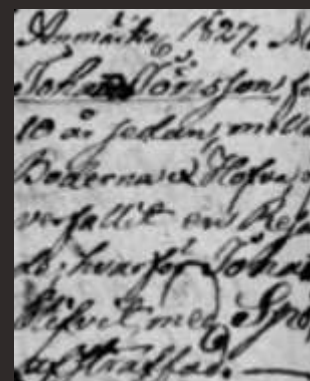 Anmärkn. 1827. M
Johan Jönsson, f
10 år sedan, mell
Boderna & Hofva
verfallit en Resa
de, hvarför Johan
blifvit med Spö
afstraffad. —